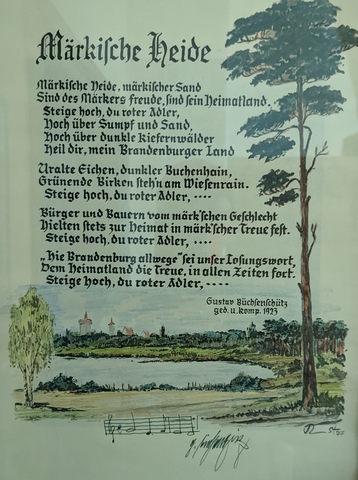 Märkische Heide
Märkische Heide, märkischer Sand
Sind des Märkers Freude, sind sein Heimatland.
Steige hoch, du roter Adler,
Hoch über Sumpf und Sand,
Hoch über dunkle Kiefernwälder
Heil dir, mein Brandenburger Land
Uralte Eichen, dunkler Buchenhain,
Grünende Birken steh'n am Wiesenrain.
Steige hoch, du roter Adler, ....
Bürger und Bauern vom märk'schen Geschlecht
Hielten stets zur Heimat in märk'scher Treue fest.
Steige hoch, du roter Adler, ....
„Hie Brandenburg allwege" sei unser Losungswort,
Dem Heimatland die Treue, in allen Zeiten fort.
Steige hoch, du roter Adler, ....
Gustav Büchsenschütz
ged. u. komp. 1923